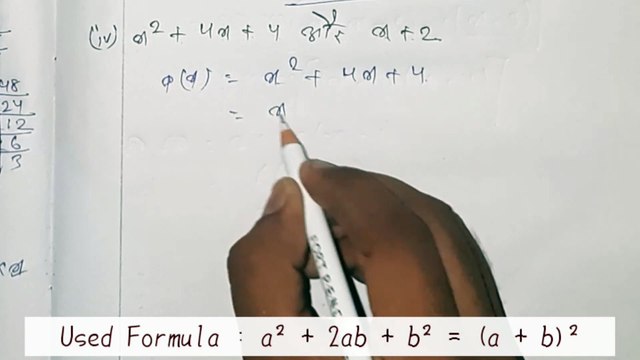 (iv) x² + 4x + 4 और x + 2
p(x) = x² + 4x + 4
= x
48
24
12
6
3
Used Formula : a² + 2ab + b² = (a + b)²